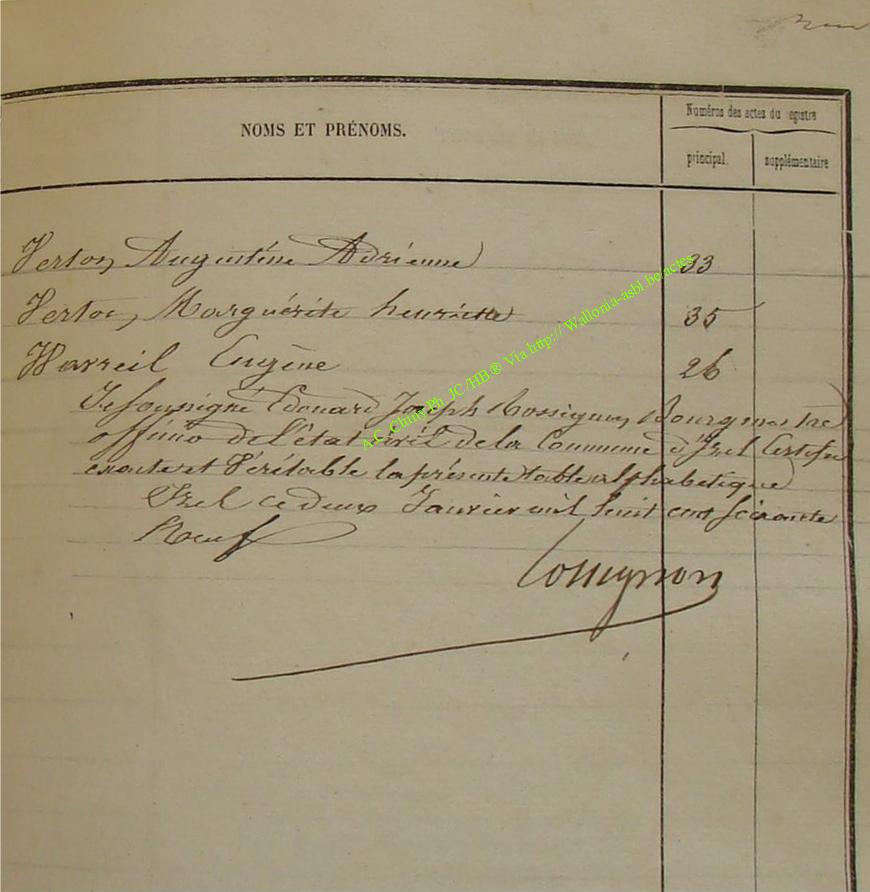 Numéros des actes du registre
NOMS ET PRÉNOMS.
principal. supplémentaire
Augustine Adrienne 33
Marguérite henriette 35
Eugène 26
Je soussigné Edouard Joseph Rossignon Bourgmestre
officier de l'état civil de la Commune d'Izel Certifie
exacte et Véritable la présente table alphabetique
Izel ce deux Janvier mil huit cent soixante
Neuf
Rossignon
A.C. Chiny Ph JC/HB® Via http:// Wallonia-asbl.be/actes